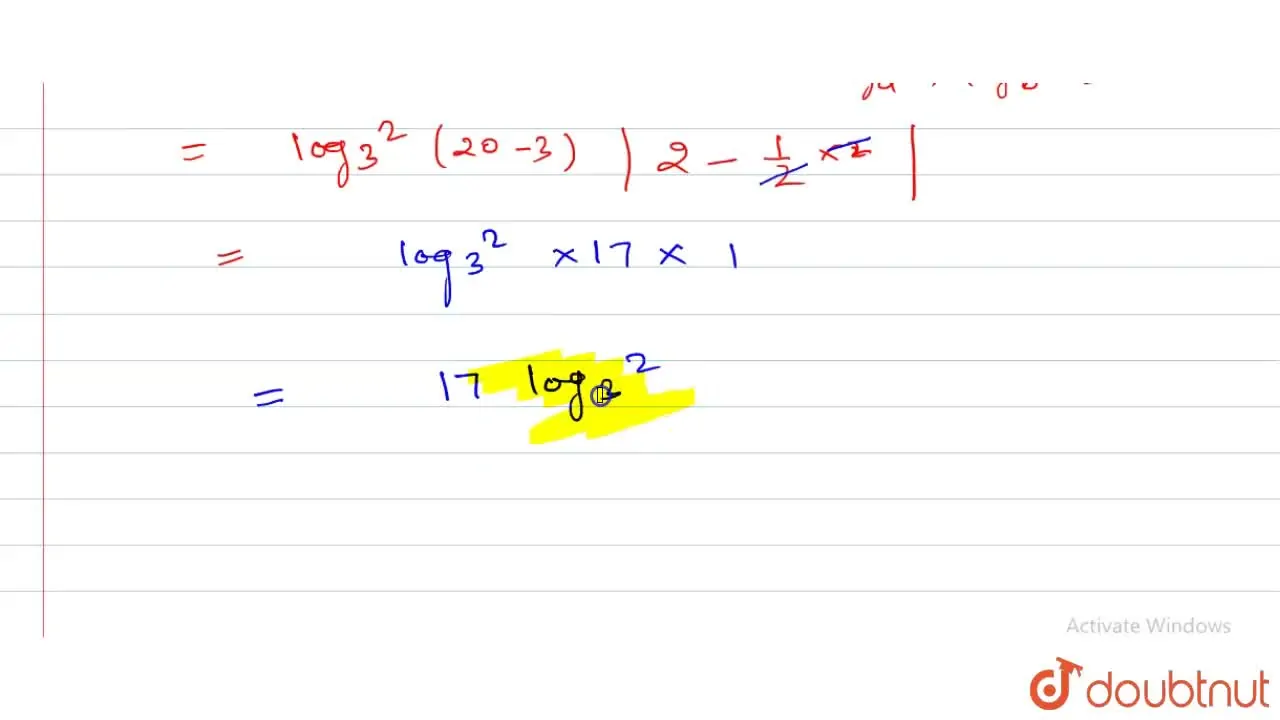 = log₃² (20-3) | 2 - 1/2 ×2 |
= log₃² ×17 × 1
= 17 log₃²
Activate Windows
doubtnut